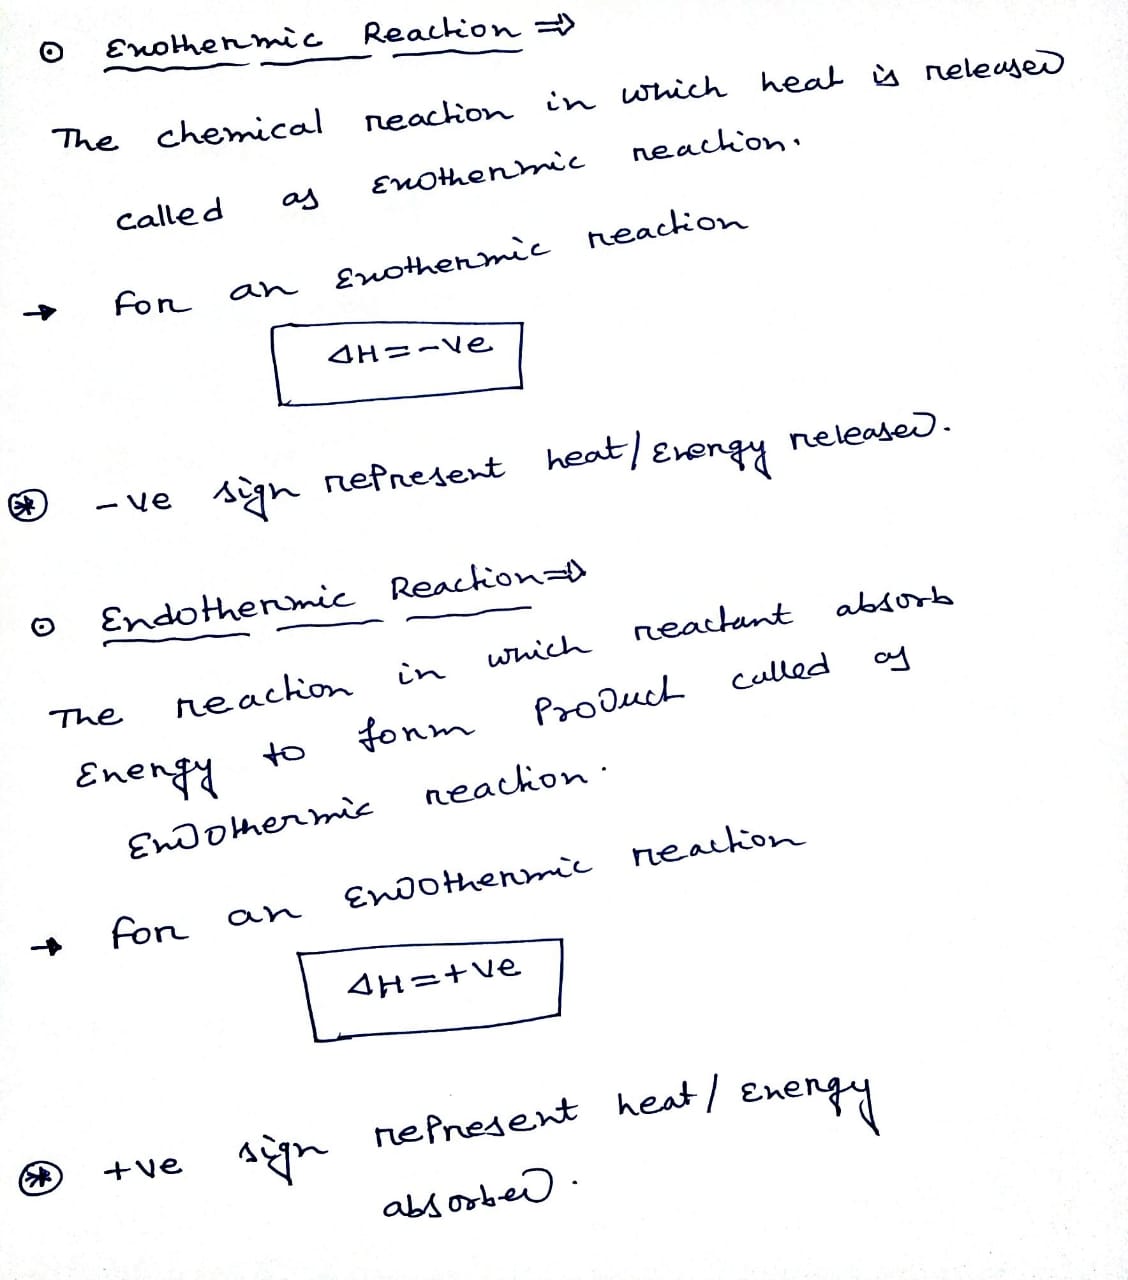 ⊙ Exothermic Reaction ⇒
The chemical reaction in which heat is released
called as Exothermic reaction.
→ for an Exothermic reaction
ΔH = -ve
⊛ -ve sign represent heat/Energy released.
⊙ Endothermic Reaction ⇒
The reaction in which reactant absorb
Energy to form Product called as
Endothermic reaction.
→ for an Endothermic reaction
ΔH = +ve
⊛ +ve sign represent heat/Energy
absorbed.